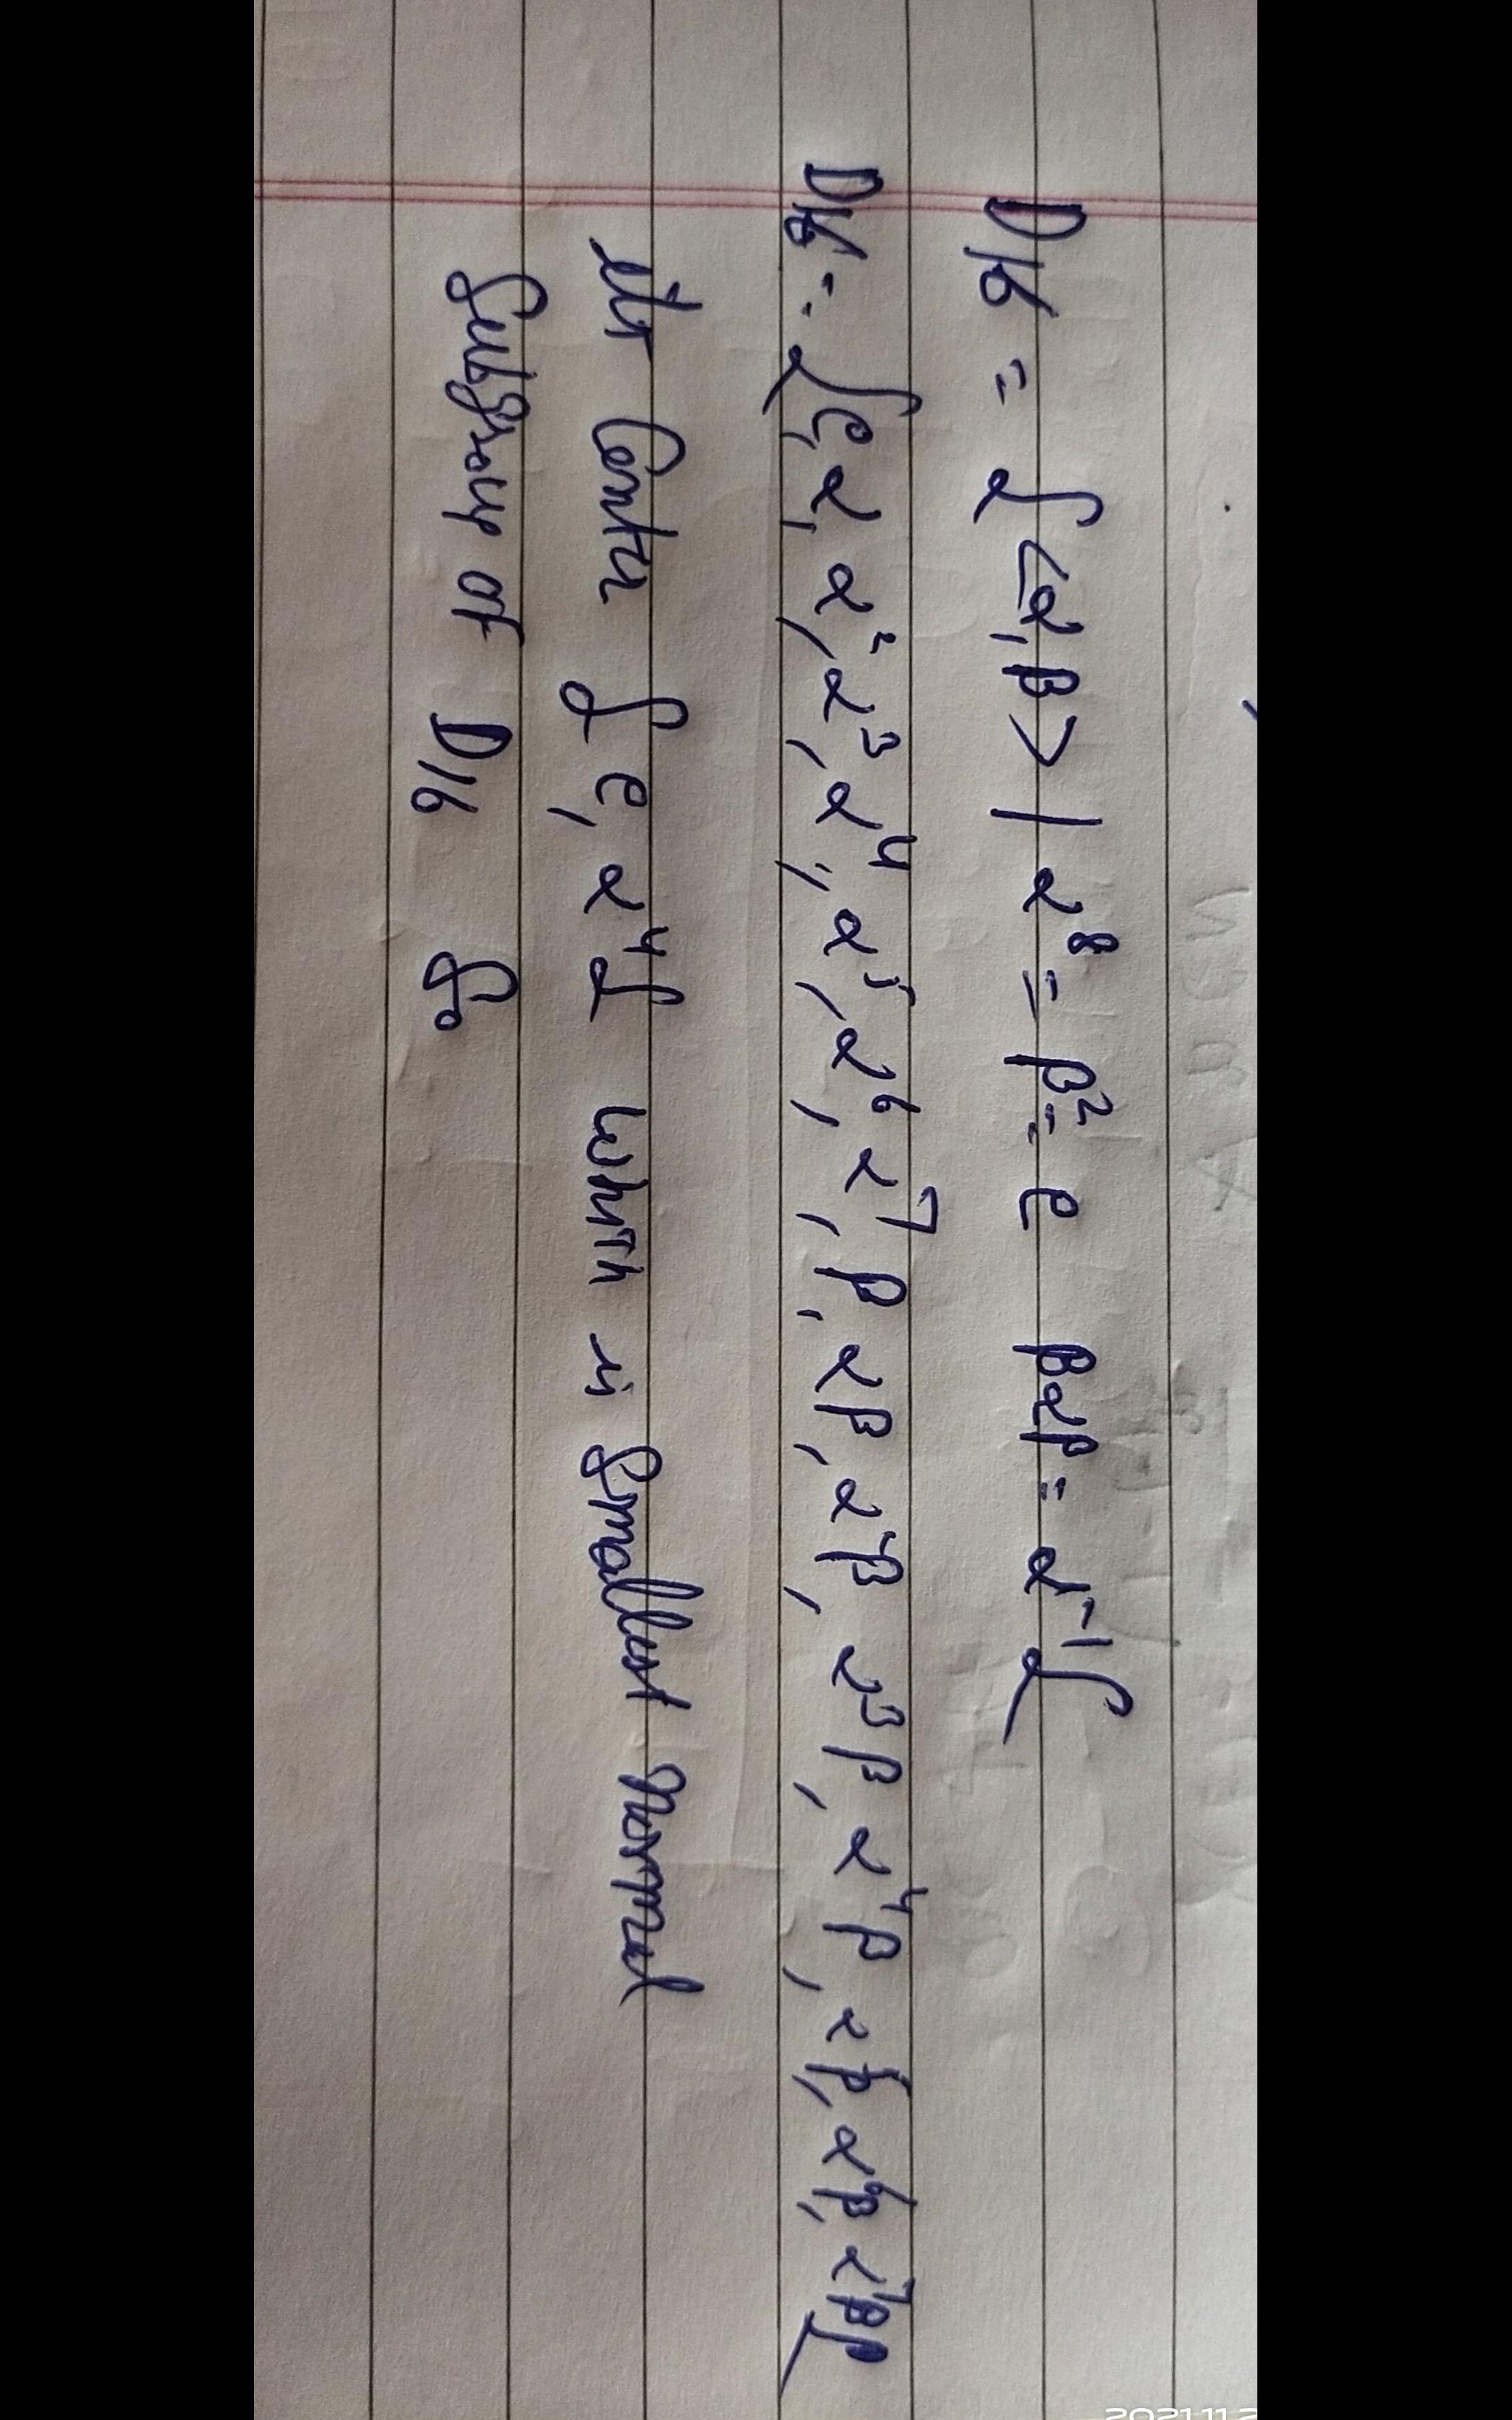 D16 = {<α, β> | α⁸ = β² = e βαβ = α⁻¹}
D16 = {e, α, α², α³, α⁴, α⁵, α⁶, α⁷, β, αβ, α²β, α³β, α⁴β, α⁵β, α⁶β, α⁷β}
its Center {e, α⁴} which is Smallest Normal
Subgroup of D16 So